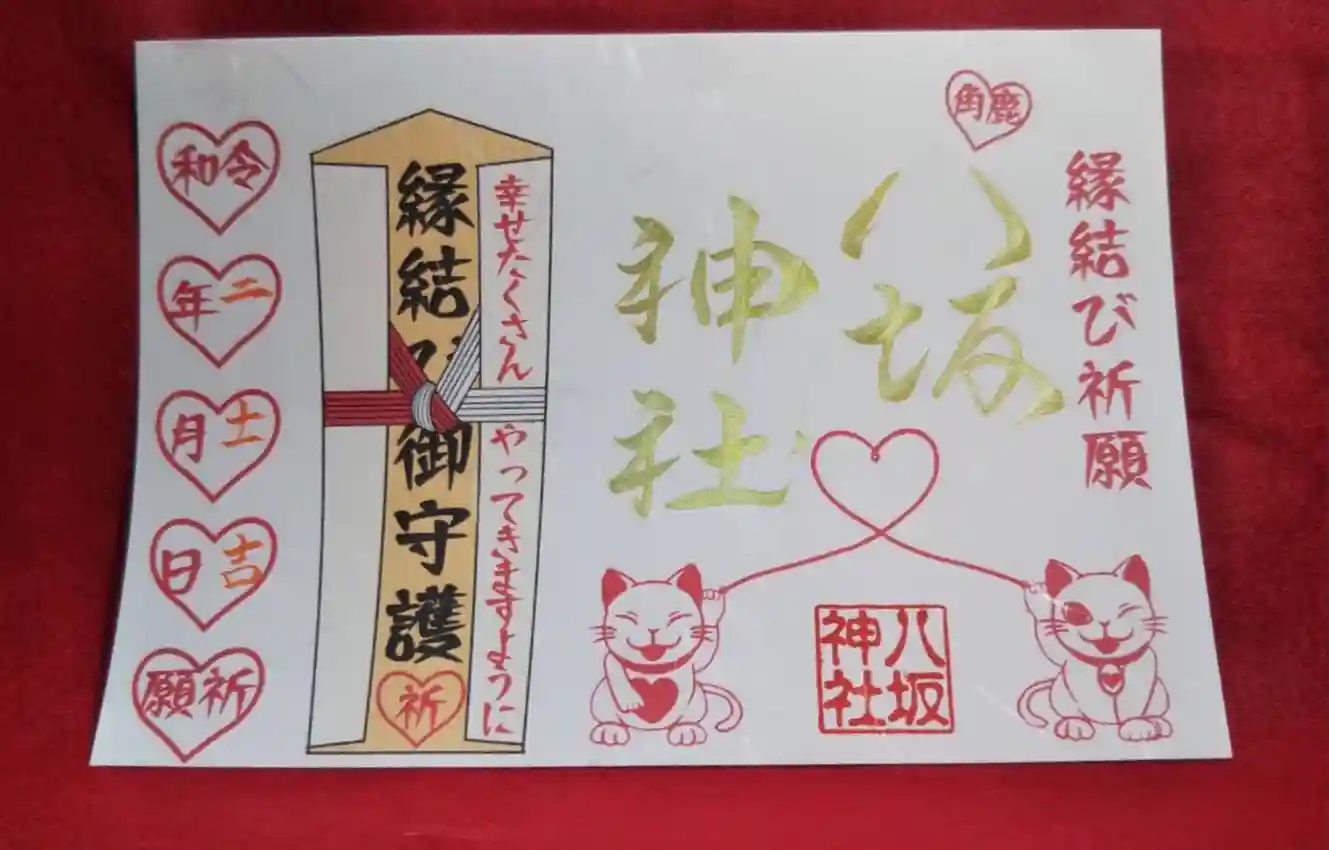 角鹿
縁結び祈願
八坂
神社
八坂
神社
幸せたくさん やってきますように
縁結び御守護
祈
令和
二年
十一月
吉日
祈願